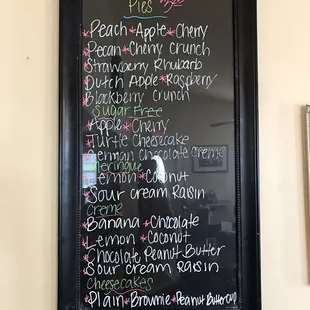 Pies
*Peach *Apple *Cherry
*Pecan *Cherry Crunch
*Strawberry Rhubarb
*Dutch Apple *Raspberry
*Blackberry Crunch
Sugar Free
*Apple *Cherry
*Turtle Cheesecake
*German Chocolate Creme
Meringue
*Lemon *Coconut
*Sour cream Raisin
Creme
*Banana *Chocolate
*Lemon *Coconut
*Chocolate Peanut Butter
*Sour cream Raisin
Cheesecakes
*Plain *Brownie *Peanut Buttercup